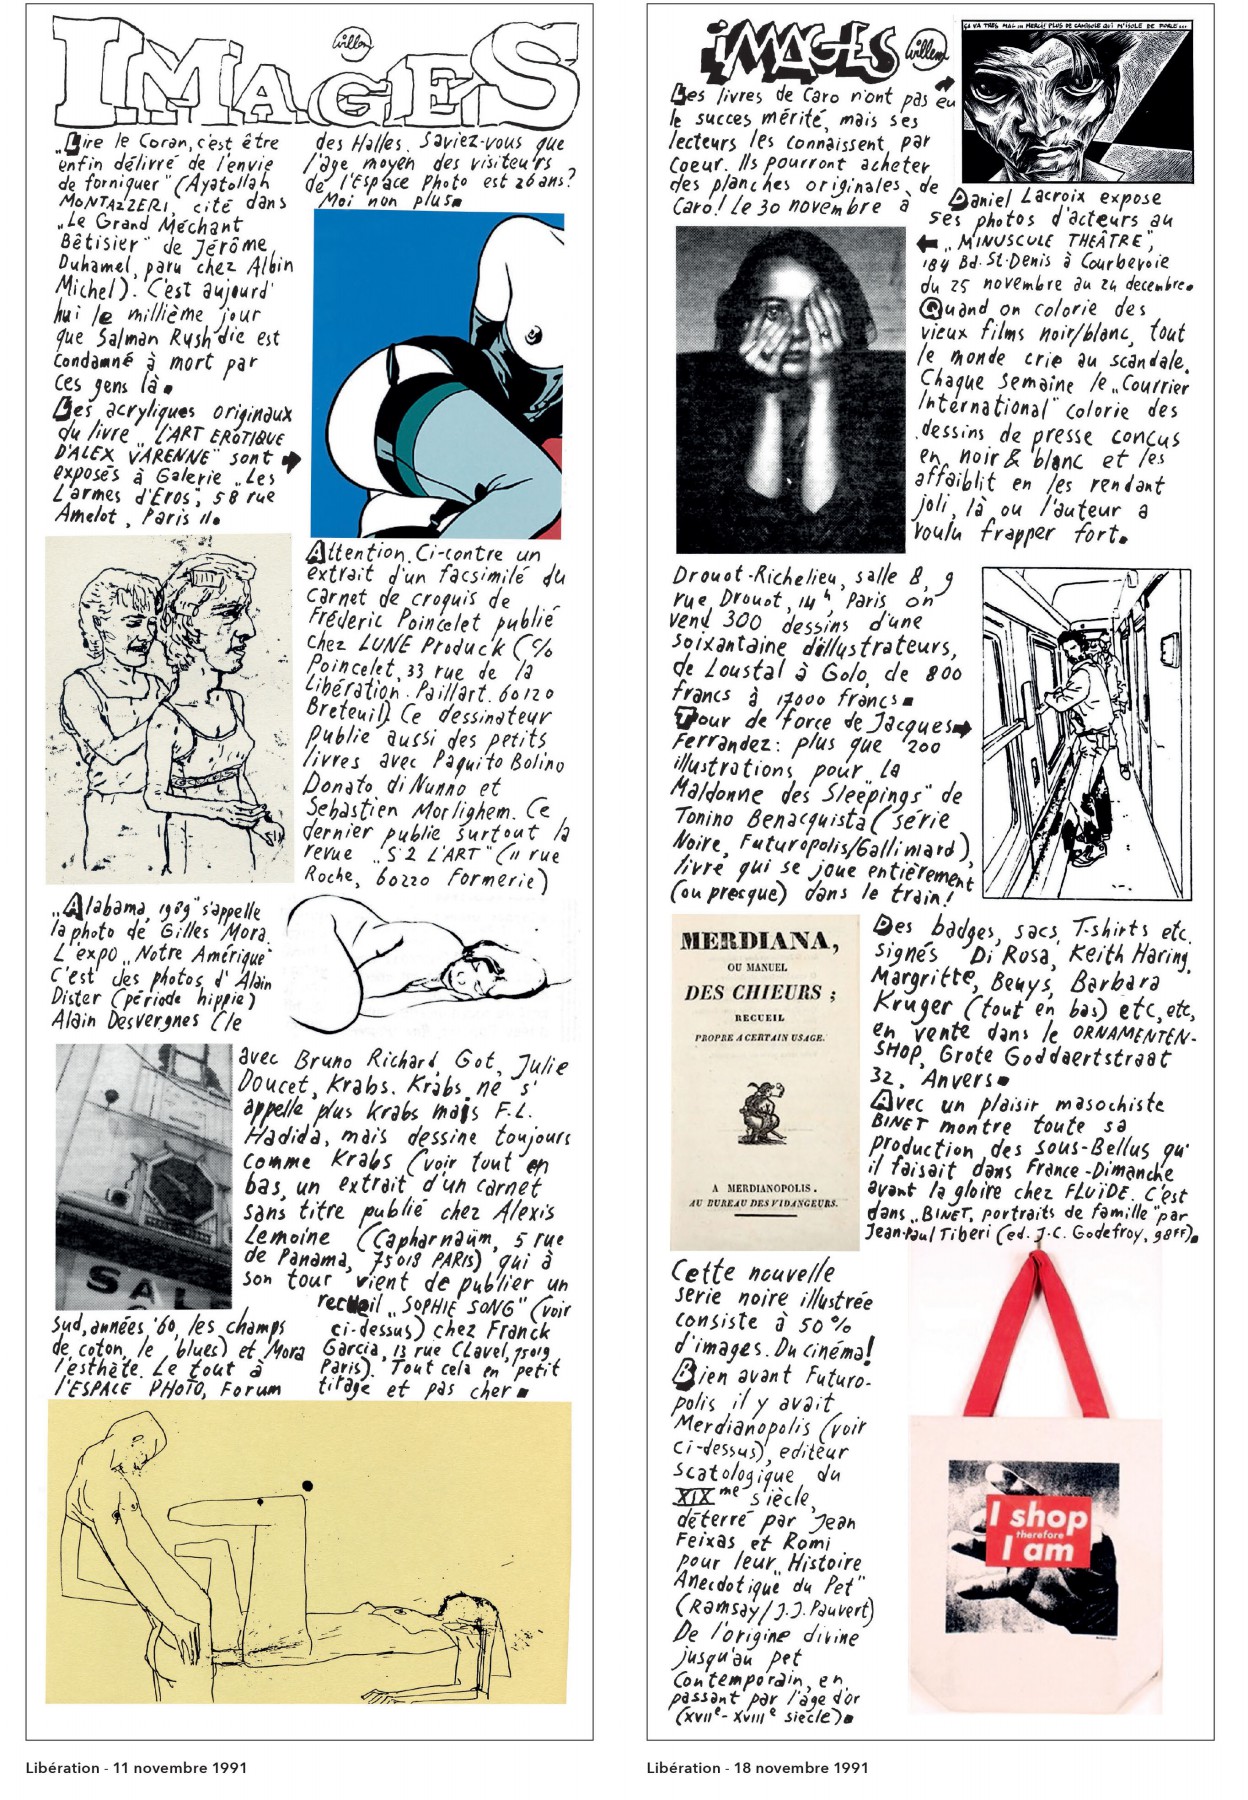 IMAGES
Willem
„Lire le Coran, c'est être
enfin délivré de l'envie
de forniquer" (Ayatollah
MONTAZZERI, cité dans
„Le Grand Méchant
Bêtisier" de Jérôme
Duhamel, paru chez Albin
Michel). C'est aujourd'
hui le millième jour
que Salman Rushdie est
condamné à mort par
ces gens là.
Les acryliques originaux
du livre „L'ART EROTIQUE
D'ALEX VARENNE" sont
exposés à Galerie „Les
Larmes d'Eros", 58 rue
Amelot, Paris 11.
„Alabama, 1989" s'appelle
la photo de Gilles Mora.
L'expo „Notre Amérique"
C'est des photos d'Alain
Dister (période hippie)
Alain Desvergnes (le
Sud, années '60, les champs
de coton, le blues) et Mora
l'esthète. Le tout à
l'ESPACE PHOTO, Forum
des Halles. Saviez-vous que
l'age moyen des visiteurs
de l'Espace Photo est 26 ans?
Moi non plus.
Attention. Ci-contre un
extrait d'un facsimilé du
carnet de croquis de
Fréderic Poincelet publié
chez LUNE Produck (c/o
Poincelet, 33 rue de la
Libération. Paillart. 60120
Breteuil). Ce dessinateur
publie aussi des petits
livres avec Paquito Bolino
Donato di Nunno et
Sebastien Morlighem. Ce
dernier publie surtout la
revue „S 2 L'ART" (11 rue
Roche, 60220 Formerie)
avec Bruno Richard, Got, Julie
Doucet, Krabs. Krabs ne s'
appelle plus Krabs mais F.L.
Hadida, mais dessine toujours
comme Krabs (voir tout en
bas, un extrait d'un carnet
sans titre publié chez Alexis
Lemoine (Capharnaüm, 5 rue
de Panama, 75018 PARIS) qui à
son tour vient de publier un
recueil „SOPHIE SONG" (voir
ci-dessus) chez Franck
Garcia, 13 rue Clavel, 75019
Paris). Tout cela en petit
tirage et pas cher.
SALE
Libération - 11 novembre 1991
IMAGES
Willem
ÇA VA TRÈS MAL... MERCI! PLUS DE CAMISOLE QUI M'ISOLE DE PORLE...
Les livres de Caro n'ont pas eu
le succes mérité, mais ses
lecteurs les connaissent par
coeur. Ils pourront acheter
des planches originales de
Caro! Le 30 novembre à
Drouot-Richelieu, salle 8, 9
rue Drouot, 14h, Paris on
vend 300 dessins d'une
soixantaine d'illustrateurs,
de Loustal à Golo, de 800
francs à 17000 francs.
Tour de force de Jacques
Ferrandez: plus que 200
illustrations pour „La
Maldonne des Sleepings" de
Tonino Benacquista (série
Noire, Futuropolis/Gallimard),
livre qui se joue entièrement
(ou presque) dans le train!
Daniel Lacroix expose
ses photos d'acteurs au
„MINUSCULE THEÂTRE",
184 Bd. St-Denis à Courbevoie
du 25 novembre au 24 decembre.
Quand on colorie des
vieux films noir/blanc, tout
le monde crie au scandale.
Chaque semaine le „Courrier
International" colorie des
dessins de presse concus
en noir & blanc et les
affaiblit en les rendant
joli, là ou l'auteur a
voulu frapper fort.
MERDIANA,
OU MANUEL
DES CHIEURS ;
RECUEIL
PROPRE A CERTAIN USAGE.
A MERDIANOPOLIS.
AU BUREAU DES VIDANGEURS.
Des badges, sacs, T-shirts etc.
signés Di Rosa, Keith Haring,
Margritte, Beuys, Barbara
Kruger (tout en bas) etc, etc,
en vente dans le ORNAMENTEN-
SHOP, Grote Goddaertstraat
32, Anvers.
Avec un plaisir masochiste
BINET montre toute sa
production des sous-Bellus qu'
il faisait dans France-Dimanche
avant la gloire chez FLUIDE. C'est
dans „BINET, portraits de famille" par
Jean-Paul Tiberi (ed. J.-C. Godefroy, 98FF).
Cette nouvelle
serie noire illustrée
consiste à 50%
d'images. Du cinéma!
Bien avant Futuro-
polis il y avait
Merdianopolis (voir
ci-dessus), editeur
scatologique du
XIXme siècle,
déterré par Jean
Feixas et Romi
pour leur „Histoire
Anecdotique du Pet"
(Ramsay/J.J. Pauvert)
De l'origine divine
jusqu'au pet
contemporain, en
passant par l'âge d'or
(XVIIe-XVIIIe siècle).
I shop
therefore
I am
Libération - 18 novembre 1991